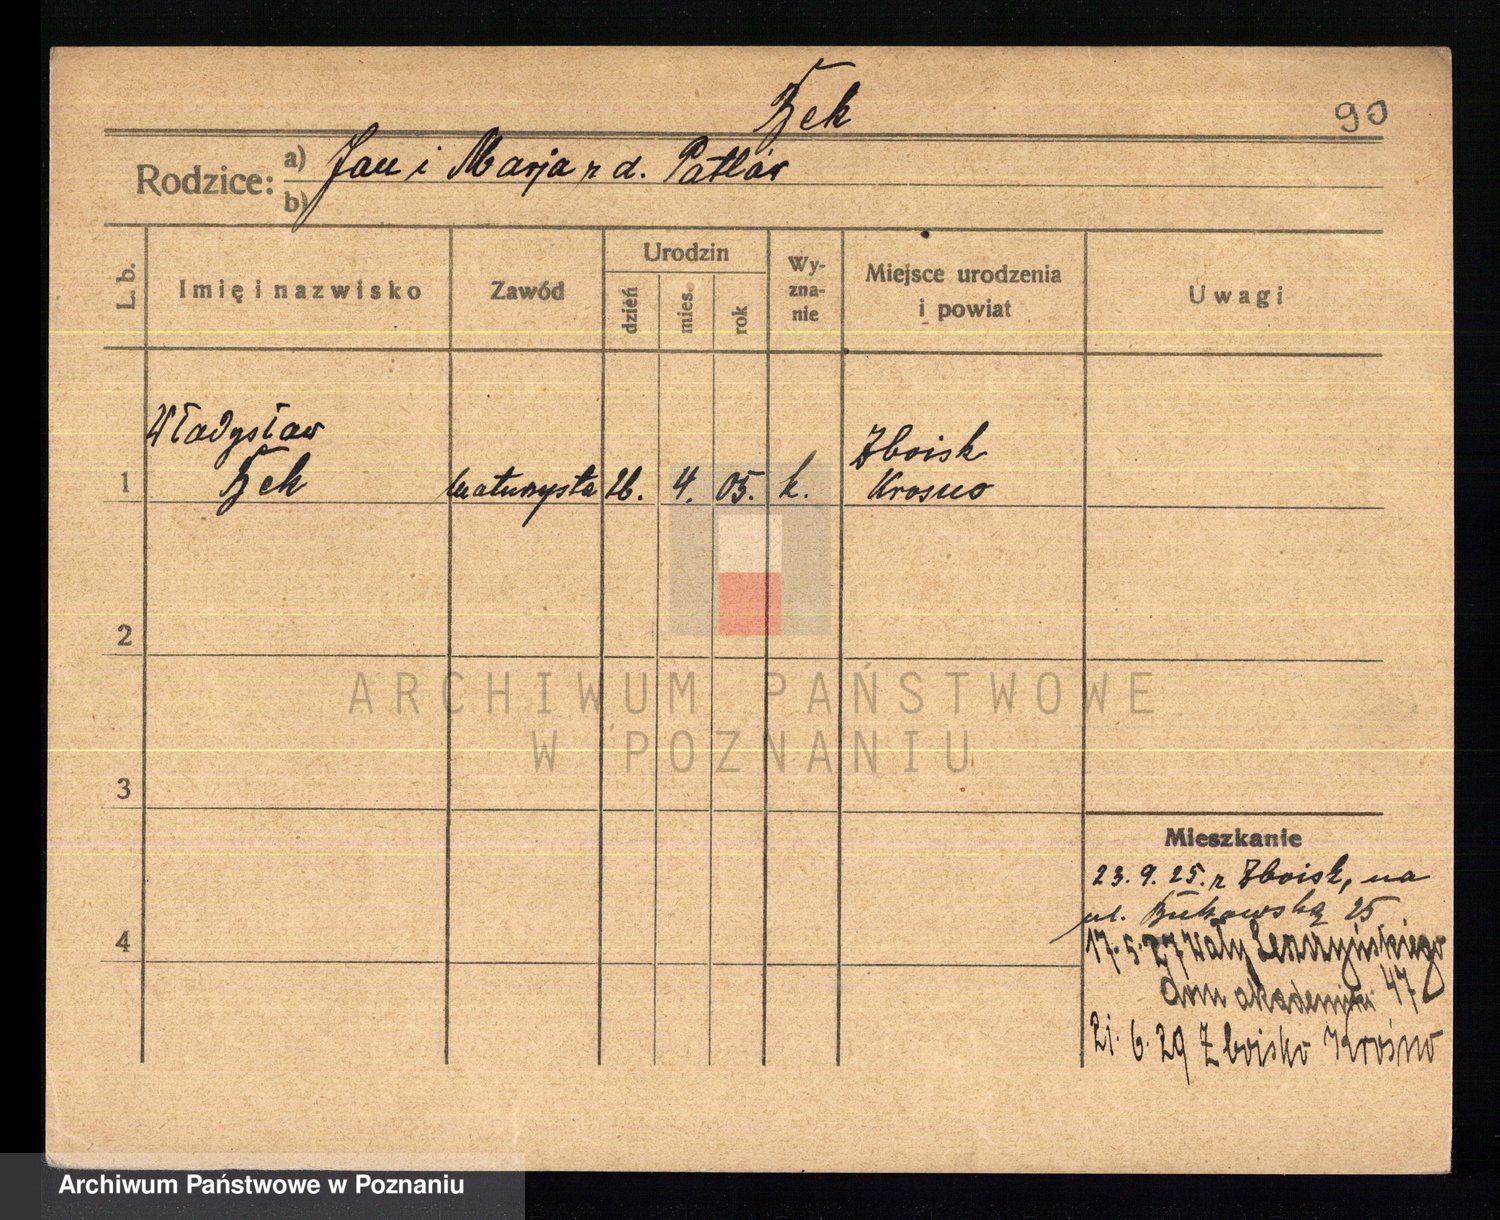 Bek
90
Rodzice:
a) Jan i Marja z d. Patlar
b)
L. b.
Imię i nazwisko
Zawód
Urodzin
dzień
mies.
rok
Wy-
zna-
nie
Miejsce urodzenia
i powiat
Uwagi
Władysław
1 Bek maturzysta 26. 4. 05. k. Zboisk
Krosno
2
ARCHIWUM PAŃSTWOWE
W POZNANIU
3
Mieszkanie
23. 9. 25. z Zboisk, na
ul. Bukowską 25
4
17. 5. 27 Wały Leszczyńskiego
dom akademicki 47
21. 6. 29 Zboisko Krosno
Archiwum Państwowe w Poznaniu